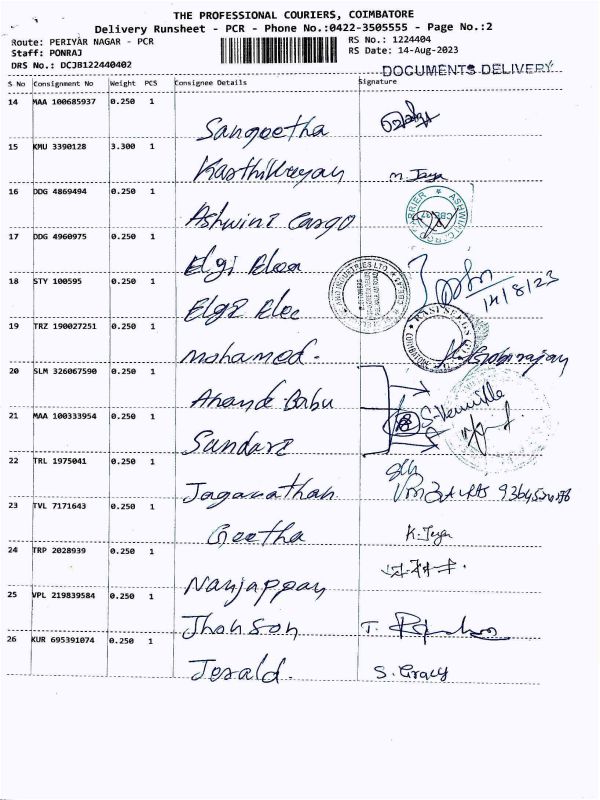 THE PROFESSIONAL COURIERS, COIMBATORE
Delivery Runsheet - PCR - Phone No.:0422-3505555 - Page No.:2
Route: PERIYAR NAGAR - PCR RS No.: 1224404
Staff: PONRAJ RS Date: 14-Aug-2023
DRS No.: DCJB122440402 DOCUMENTS DELIVERY
S No Consignment No Weight PCS Consignee Details Signature
14 MAA 100685937 0.250 1
Sangeetha
15 KMU 3390128 3.300 1
Karthikeyan M. Jaya
16 DDG 4869494 0.250 1
Ashwini Cargo
17 DDG 4960975 0.250 1
Elgi Elec
18 STY 100595 0.250 1
Elgi Elec 14/8/23
19 TRZ 190027251 0.250 1
Mohamed.
20 SLM 326067590 0.250 1
Anand Babu
21 MAA 100333954 0.250 1
Sundari
22 TRL 1975041 0.250 1
Jaganathan
23 TVL 7171643 0.250 1
Geetha K. Jaya
24 TRP 2028939 0.250 1
Nanjappan
25 VPL 219839584 0.250 1
Jhonson
26 KUR 695391074 0.250 1
Jerald. S. Gracy